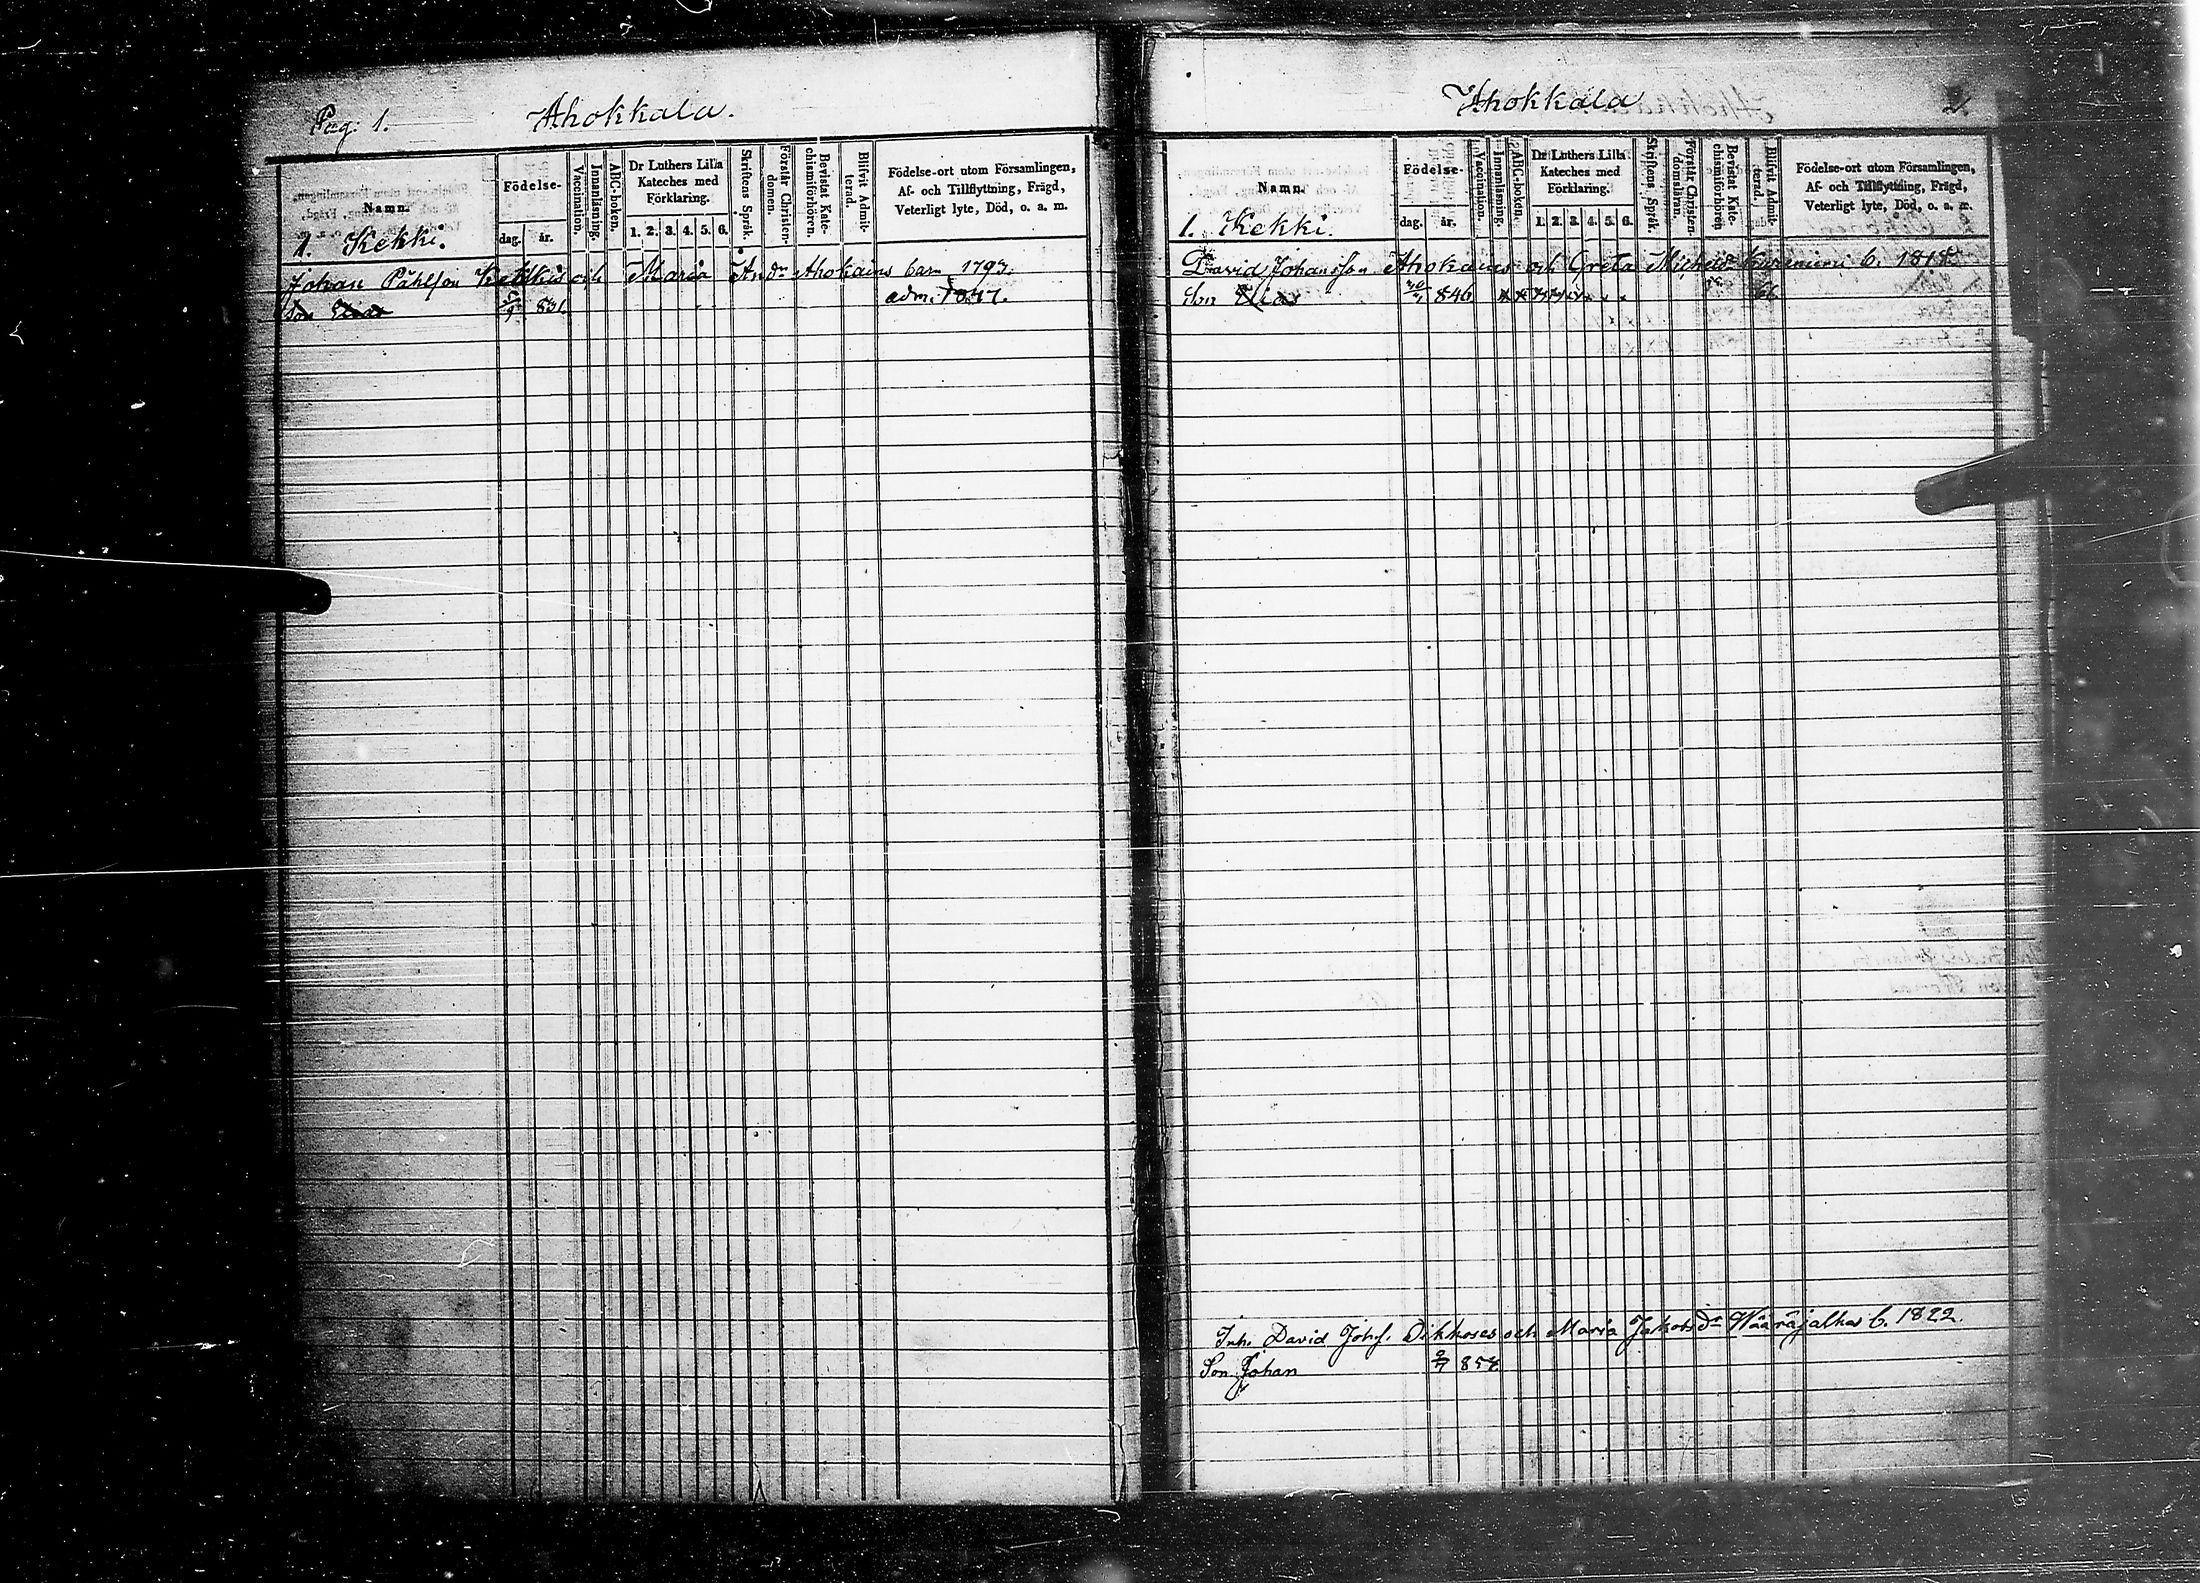 Pag: 1. Ahokkala.
Namn.
Födelse-
dag. år.
Vaccination.
Innanläsning.
ABC-boken.
Dr Luthers Lilla
Kateches med
Förklaring.
1. 2. 3. 4. 5. 6.
Skriftens Språk.
Förstår Christen-
domen.
Bevistat Kate-
chismiförhören.
Blifvit Admit-
terad.
Födelse-ort utom Församlingen,
Af- och Tillflyttning, Frägd,
Veterligt lyte, Död, o. a. m.
1. Kekki.
Johan Påhlson och Maria And:dr Ahokains barn 1793.
Son Elias 831. adm.
Ahokkala 2.
Namn.
Födelse-
dag. år.
Vaccination.
Innanläsning.
ABC-boken.
Dr Luthers Lilla
Kateches med
Förklaring.
1. 2. 3. 4. 5. 6.
Skriftens Språk.
Förstår Christen-
domsläran.
Bevistat Kate-
chismiförhören
Blifvit Admit-
terad.
Födelse-ort utom Församlingen,
Af- och Tillflyttning, Frägd,
Veterligt lyte, Död, o. a. m.
1. Kekki.
David Johansson Ahokains och Greta b. 1818
Son Elias 846
Inh. David Johs. och Maria Jakobsdr Wääräjalkas b. 1822.
Son Johan